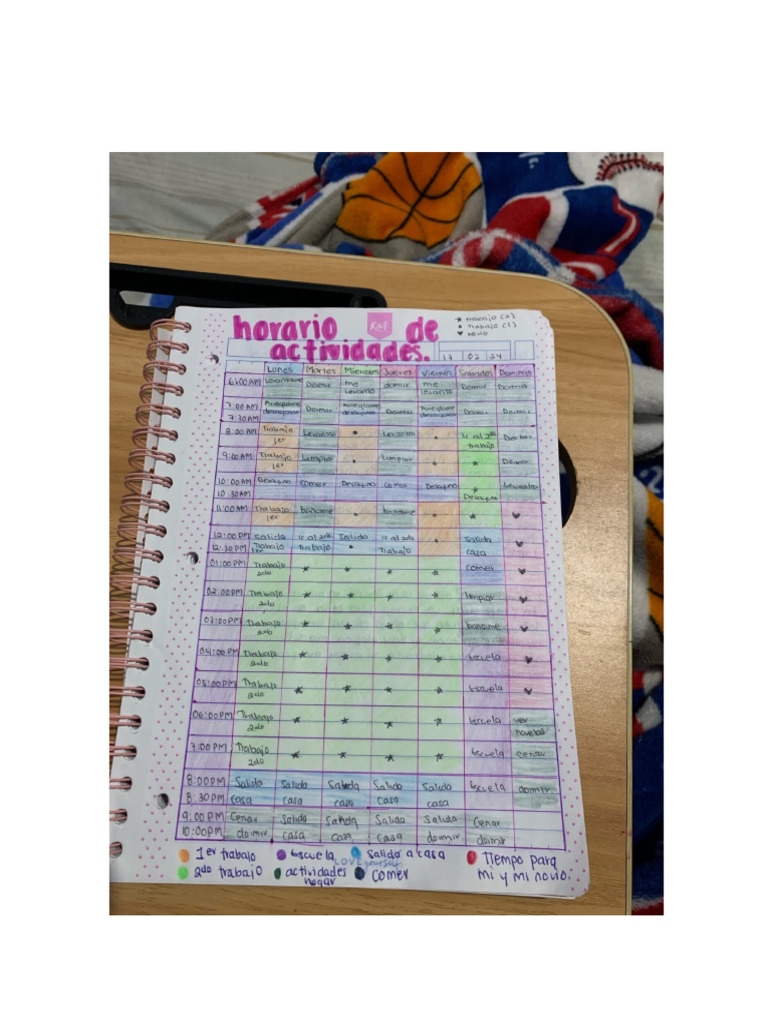 horario KAT de
actividades.
★ trabajo (2)
• Trabajo (1)
♥ novio
17 02 24
Lunes Martes Miercoles Jueves Viernes Sabados Domingos
6:00 AM Levantarme Dormir me levanto dormir me levanto Dormir Dormir
7:00 AM 7:30 AM Dormir Dormir Dormir
8:00 AM Trabajo 1er Levantar • Levantar • Ir al 2do trabajo Dormir
9:00 AM Trabajo 1er Limpiar • Limpiar • ★ Dormir
10:00 AM 10:30 AM Desayuno comer Desayuno comer Desayuno ★ Desayuno
11:00 AM Trabajo 1er bañarme • bañarme • ★ ♥
12:00 PM 12:30 PM Salida Trabajo 1er Ir al 2do trabajo Salido • Ir al 2do Trabajo • Salida casa ♥
01:00 PM Trabajo 2do ★ ★ ★ ★ comer ♥
02:00 PM Trabajo 2do ★ ★ ★ ★ limpiar ♥
03:00 PM Trabajo 2do ★ ★ ★ ★ bañarme ♥
04:00 PM Trabajo 2do ★ ★ ★ ★ Escuela ♥
05:00 PM Trabajo 2do ★ ★ ★ ★ Escuela ♥
06:00 PM Trabajo 2do ★ ★ ★ ★ Escuela ver novelas
7:00 PM Trabajo 2do ★ ★ ★ ★ Escuela cenar
8:00 PM 8:30 PM Salida casa Salida casa Salida casa Salida casa Salida casa Escuela dormir
9:00 PM Cenar Salida Salida Salida Salida Cenar
10:00 PM dormir casa casa casa dormir dormir
1er trabajo Escuela Salida a casa Tiempo para
LOVE yourself
2do trabajo actividades hogar comer mi y mi novio.